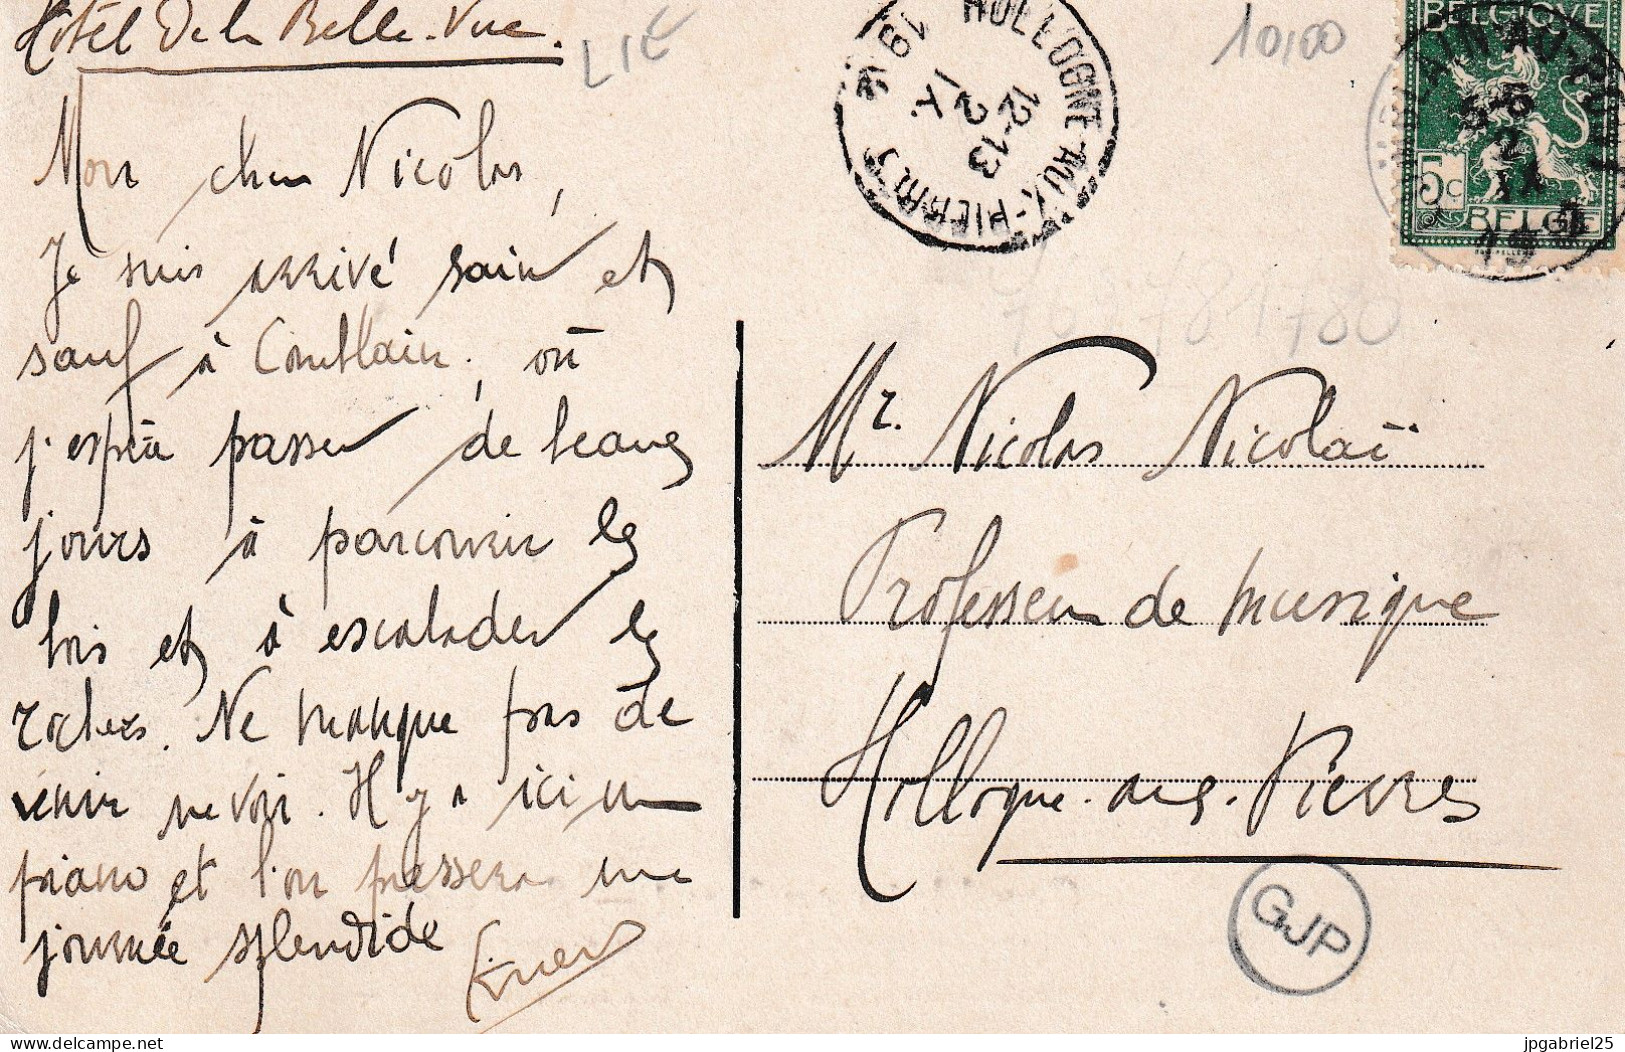 Hôtel De la Belle-Vue.
LIE
Mon cher Nicolas,
Je suis arrivé sain et
sauf à Comblain, où
j'espère passer de beaux
jours à parcourir les
bois et à escalader les
rochers. Ne manque pas de
venir me voir. Il y a ici un
piano et l'on passera une
journée splendide
HOLLOGNE-AUX-PIERRES
12-13
2
19
10,00
BELGIQUE
5c
BELGIE
Mr. Nicolas Nicolaï
Professeur de musique
Hollogne-aux-Pierres
GJP
delcampe.net
jpgabriel25